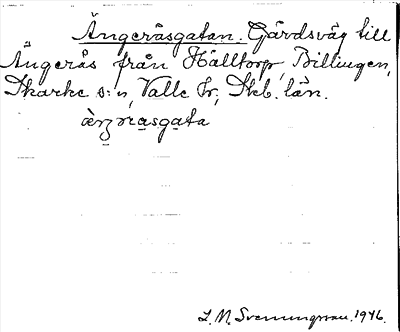 Ängeråsgatan. Gårdsväg till
Ängerås från Hälltorp, Billingen,
Skarke s:n, Valle hr, Skb. län.
L. M. Svenungsson. 1946.